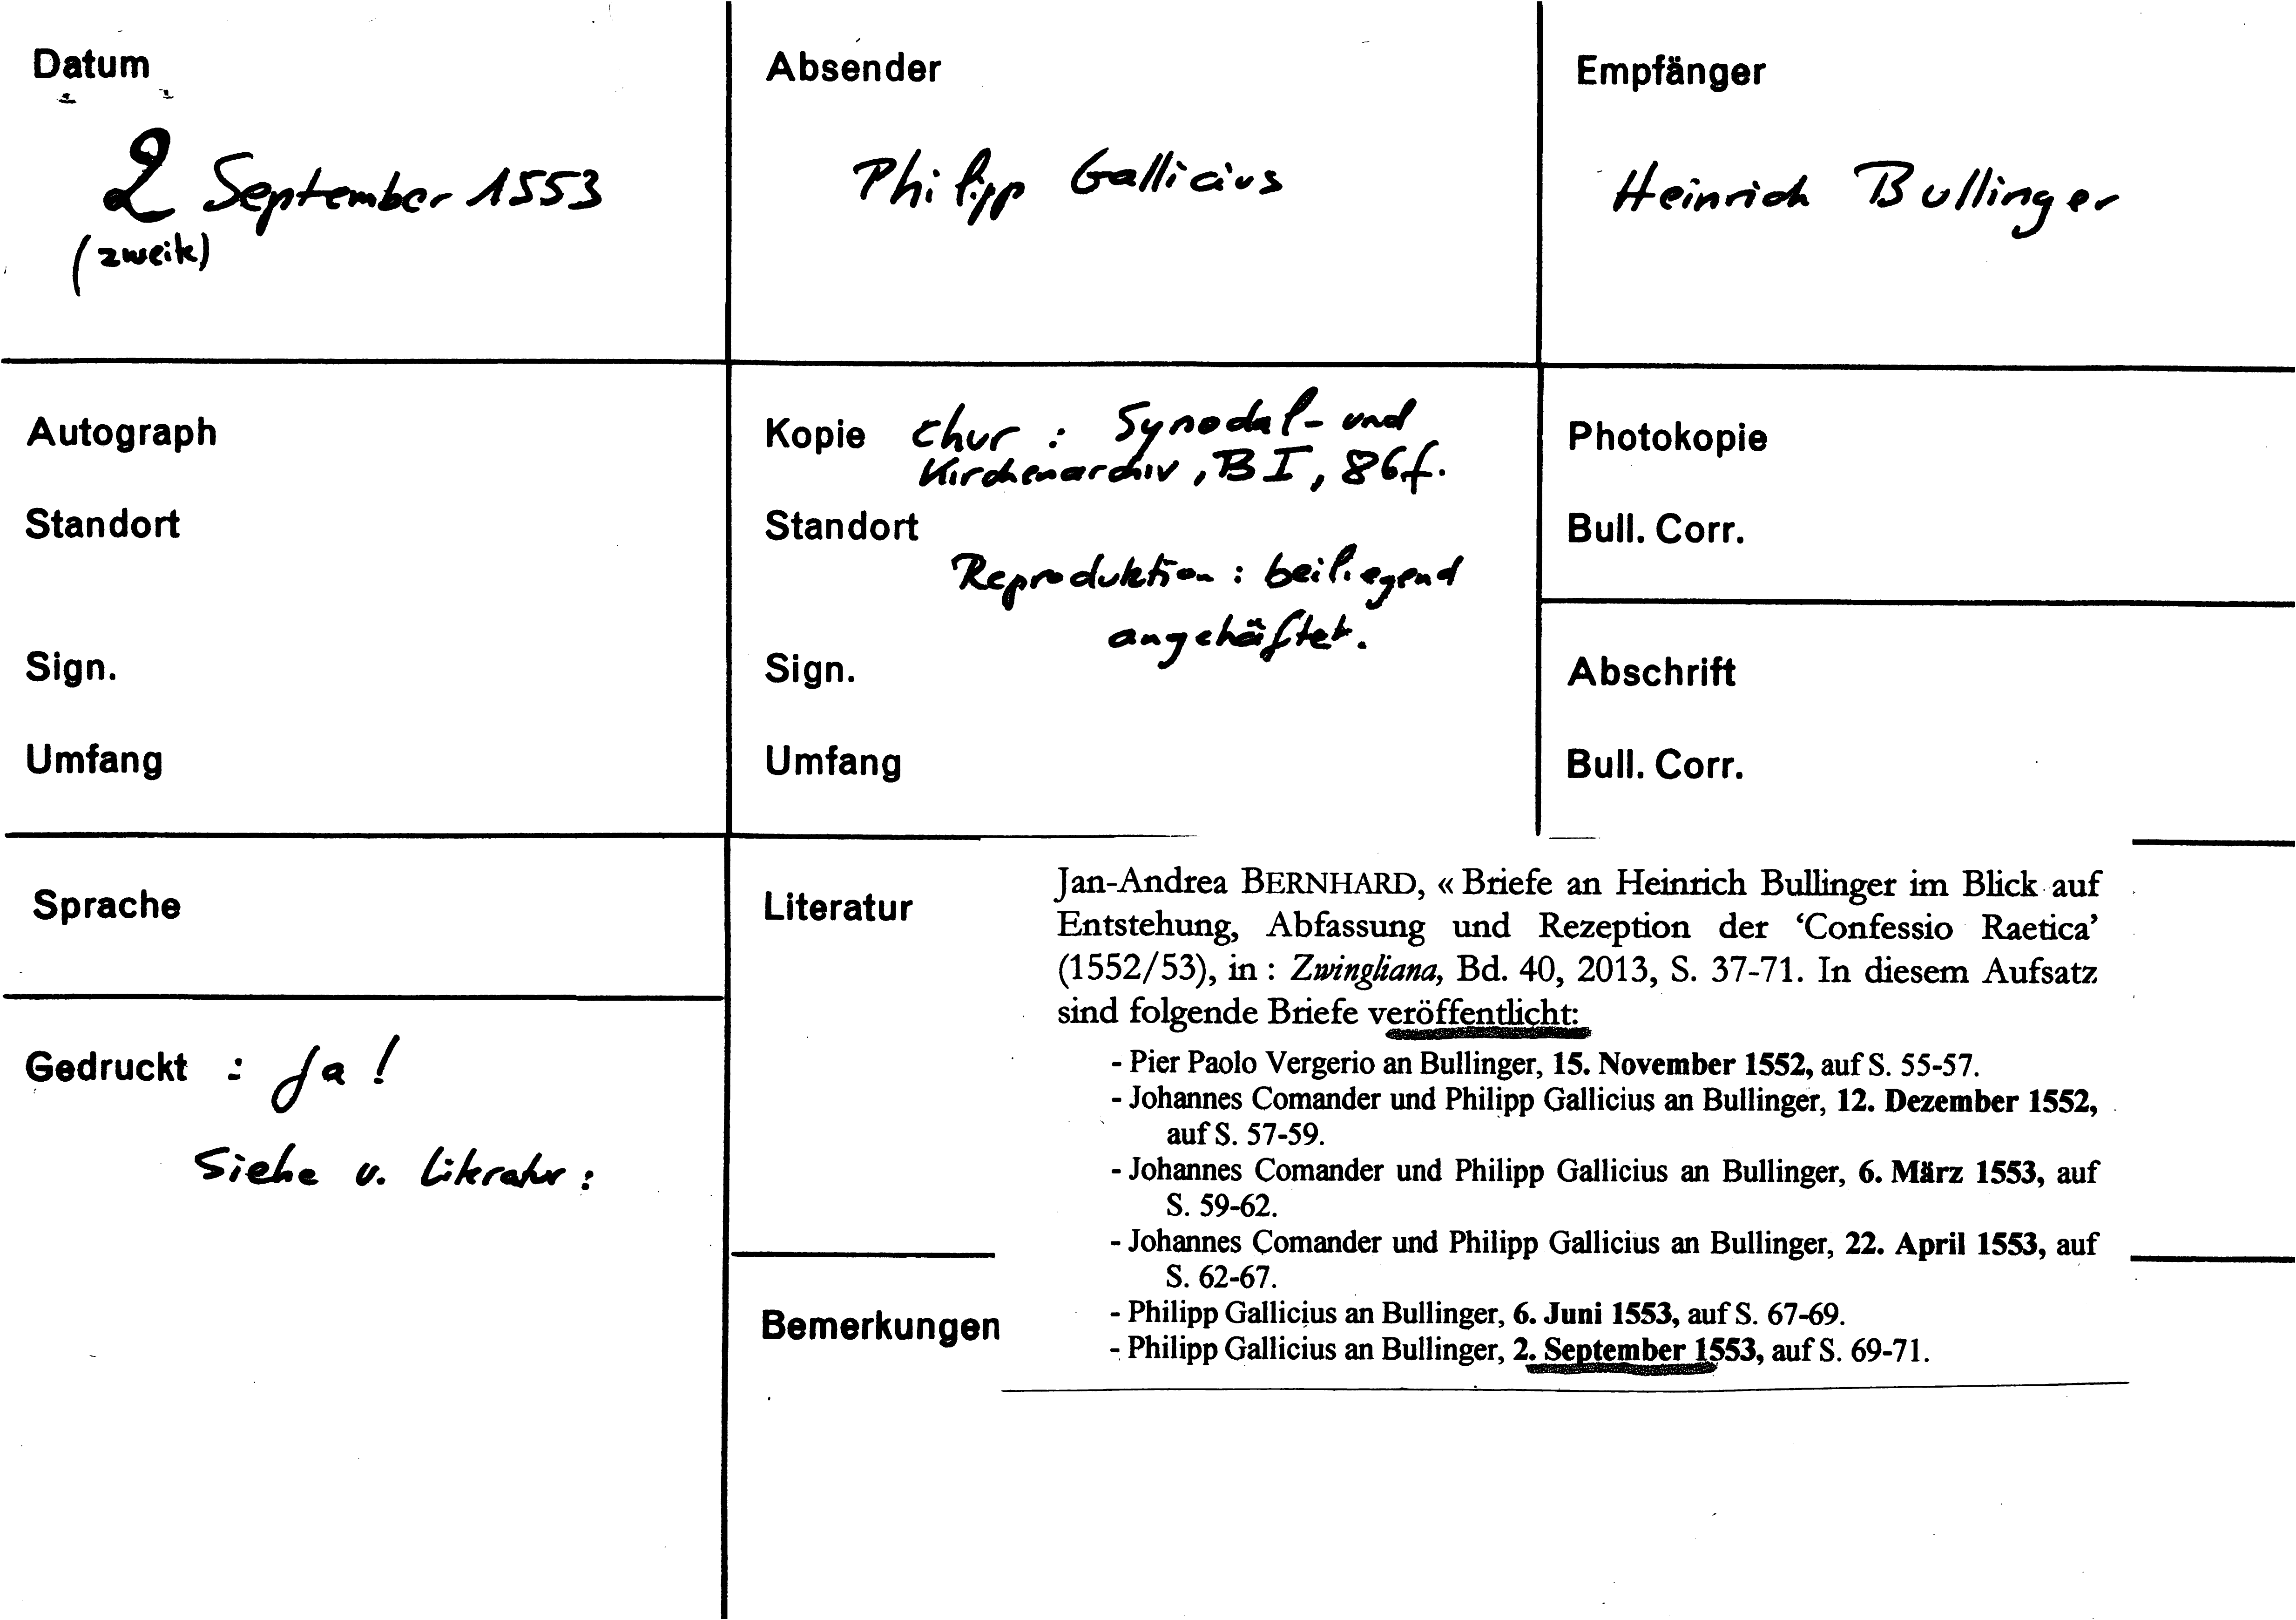 Datum
2 September 1553
(zweite)
Absender
Philipp Gallicius
Empfänger
Heinrich Bullinger
Autograph
Standort
Sign.
Umfang
Kopie Chur : Synodal- und
Kirchenarchiv, B I, 86f.
Standort
Reproduktion : beiliegend
angehäftet.
Sign.
Umfang
Photokopie
Bull. Corr.
Abschrift
Bull. Corr.
Sprache
Gedruckt : Ja !
Siehe u. Literatur :
Literatur
Jan-Andrea BERNHARD, « Briefe an Heinrich Bullinger im Blick auf
Entstehung, Abfassung und Rezeption der ‘Confessio Raetica’
(1552/53), in : Zwingliana, Bd. 40, 2013, S. 37-71. In diesem Aufsatz
sind folgende Briefe veröffentlicht:
- Pier Paolo Vergerio an Bullinger, 15. November 1552, auf S. 55-57.
- Johannes Comander und Philipp Gallicius an Bullinger, 12. Dezember 1552,
auf S. 57-59.
- Johannes Comander und Philipp Gallicius an Bullinger, 6. März 1553, auf
S. 59-62.
- Johannes Comander und Philipp Gallicius an Bullinger, 22. April 1553, auf
S. 62-67.
- Philipp Gallicius an Bullinger, 6. Juni 1553, auf S. 67-69.
- Philipp Gallicius an Bullinger, 2. September 1553, auf S. 69-71.
Bemerkungen